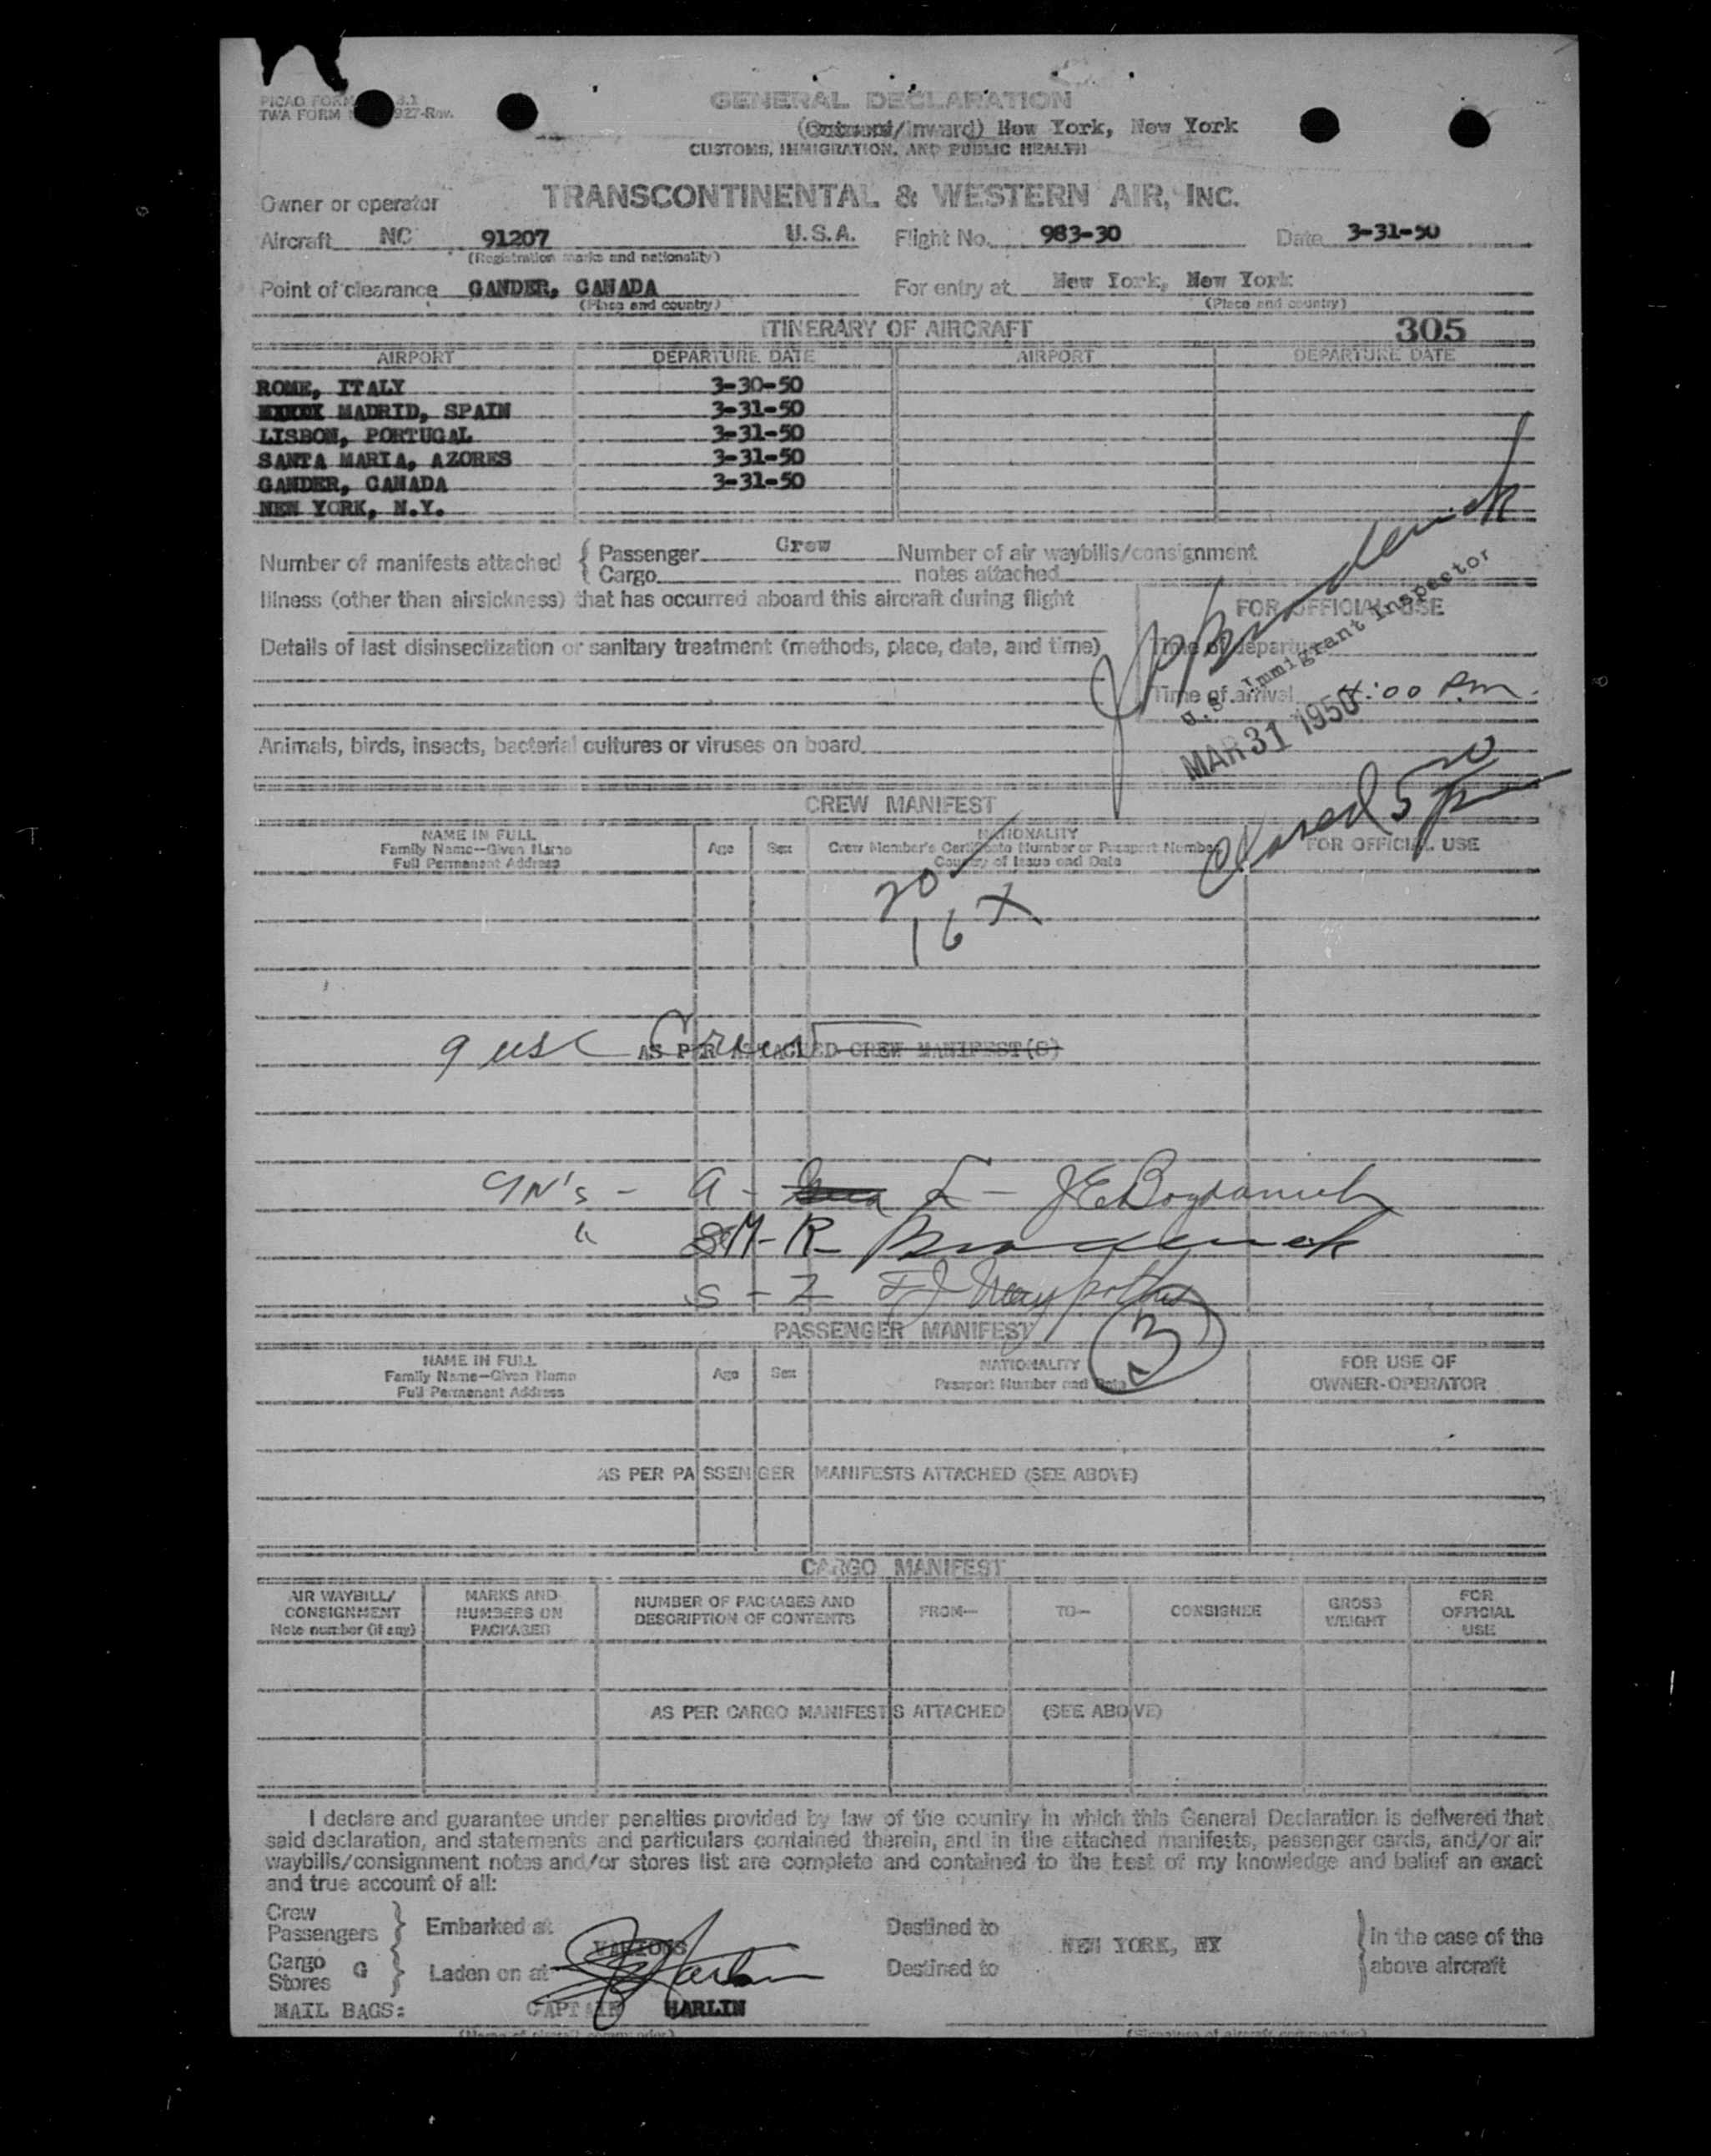 PICAO FORM 3.1
TWA FORM 927-Rev.
GENERAL DECLARATION
(Outward/Inward) New York, New York
CUSTOMS, IMMIGRATION, AND PUBLIC HEALTH
Owner or operator TRANSCONTINENTAL & WESTERN AIR, INC.
Aircraft NC 91207 U.S.A. Flight No. 983-30 Date 3-31-50
(Registration marks and nationality)
Point of clearance GANDER, CANADA For entry at New York, New York
(Place and country) (Place and country)
ITINERARY OF AIRCRAFT 305
AIRPORT DEPARTURE DATE AIRPORT DEPARTURE DATE
ROME, ITALY 3-30-50
MADRID, SPAIN 3-31-50
LISBON, PORTUGAL 3-31-50
SANTA MARIA, AZORES 3-31-50
GANDER, CANADA 3-31-50
NEW YORK, N.Y.
Number of manifests attached { Passenger Crew Number of air waybills/consignment
Cargo notes attached
Illness (other than airsickness) that has occurred aboard this aircraft during flight
FOR OFFICIAL USE
Details of last disinsectization or sanitary treatment (methods, place, date, and time)
Time of departure
U.S. Immigrant Inspector
Time of arrival 4:00 P.m.
MAR 31 1950
Animals, birds, insects, bacterial cultures or viruses on board
Closed 5 20 pm
CREW MANIFEST
NAME IN FULL Age Sex NATIONALITY FOR OFFICIAL USE
Family Name—Given Name Crew Member's Certificate Number or Passport Number
Full Permanent Address Country of Issue and Date
20
16 X
9 usc Crew AS PER ATTACHED CREW MANIFEST(S)
IN's - A - L - J E Bogdanich
" M - R - Broderick
S - Z F J
3
PASSENGER MANIFEST
NAME IN FULL Age Sex NATIONALITY FOR USE OF
Family Name—Given Name Passport Number and Date OWNER-OPERATOR
Full Permanent Address
AS PER PASSENGER MANIFESTS ATTACHED (SEE ABOVE)
CARGO MANIFEST
AIR WAYBILL/ MARKS AND NUMBER OF PACKAGES AND FROM— TO— CONSIGNEE GROSS FOR
CONSIGNMENT NUMBERS ON DESCRIPTION OF CONTENTS WEIGHT OFFICIAL
Note number (if any) PACKAGES USE
AS PER CARGO MANIFESTS ATTACHED (SEE ABOVE)
I declare and guarantee under penalties provided by law of the country in which this General Declaration is delivered that
said declaration, and statements and particulars contained therein, and in the attached manifests, passenger cards, and/or air
waybills/consignment notes and/or stores list are complete and contained to the best of my knowledge and belief an exact
and true account of all:
Crew
Passengers } Embarked at VARIOUS Destined to NEW YORK, NY } In the case of the
Cargo G
Stores } Laden on at Destined to above aircraft
MAIL BAGS: CAPTAIN HARLIN
(Name of aircraft commander) (Signature of aircraft commander)